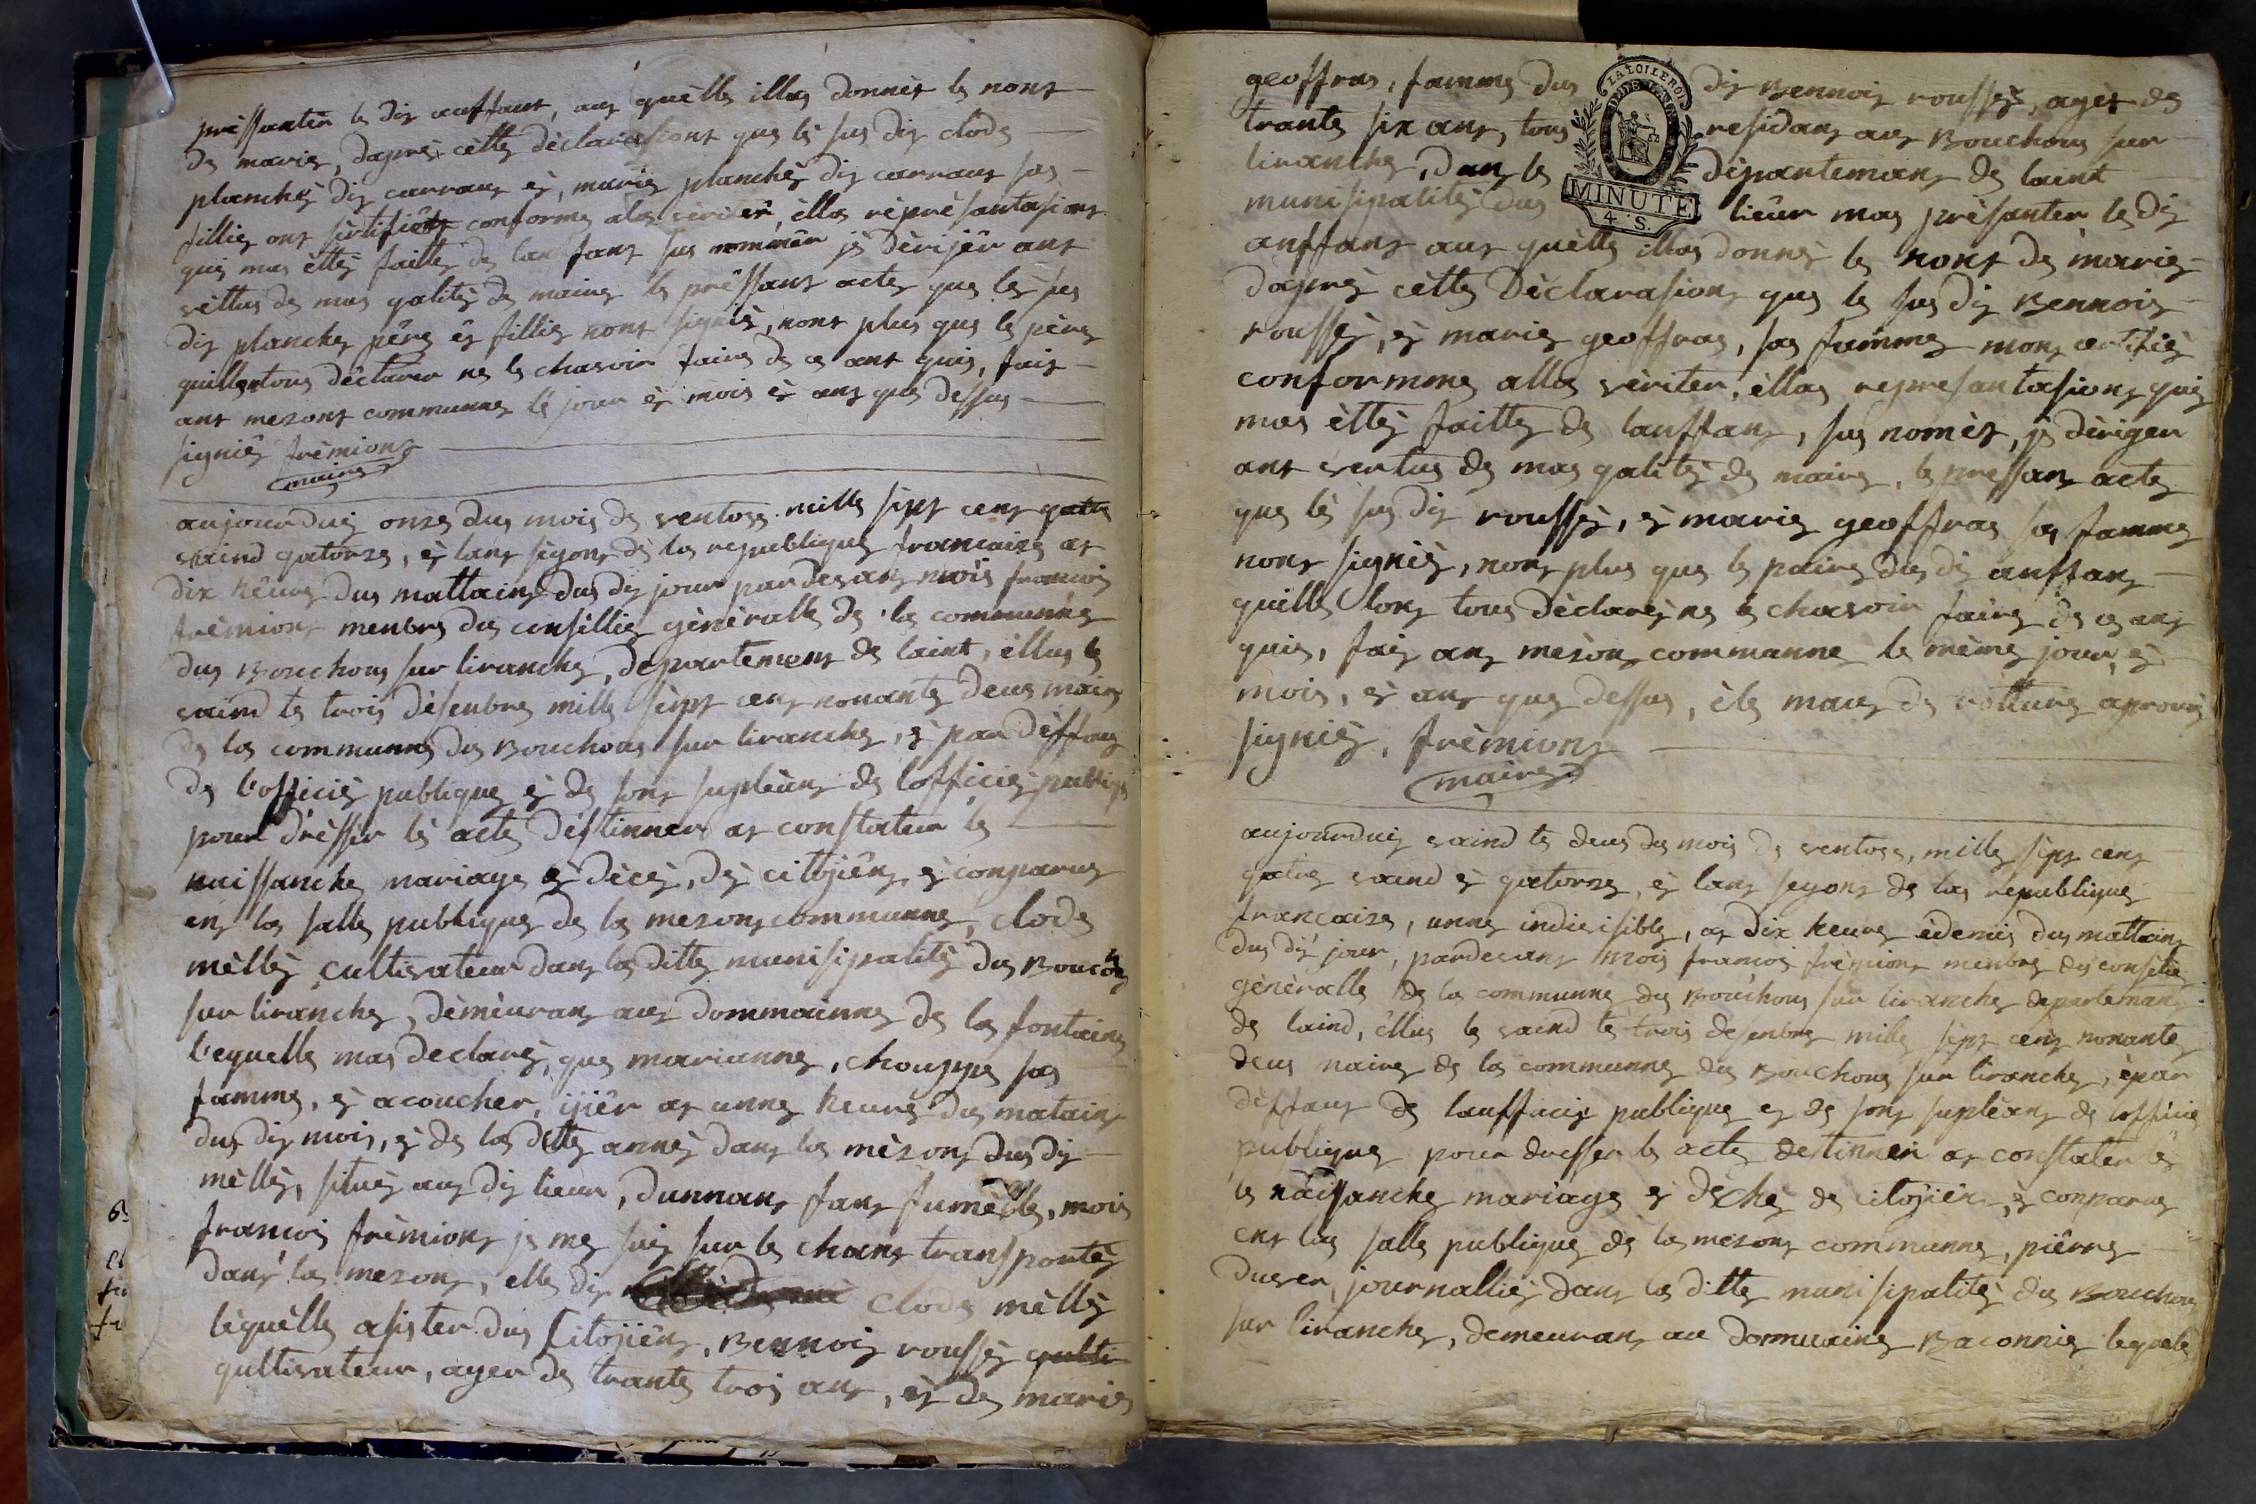 préssanter le dis auffant, auz quèlle illas donnèt le nont
de marie, dapres cette dèclarasiont que lè sus dis clode
planchè dis carraus es, marie planchè dis carraus sas
fillie ont sertifièt conforme alas vèriter, èllas rèprèsantasiont
quis mas ètté faitte de lanfant sus nommèr je dèrijèr ant
vèttus de mas qalitè de maire le prèssant acte que lè sus
dis planche père es fillie nont signiè, nont plus que le père
quillontous dèclarer ne le chavoir faire de ce ant quis, fait
ant mezont communne lè jour es mois es ant que dessus
signiè frèmiont
maire
aujourduis onze dus mois de ventose mille sept cent qatre
vaind qatorze, es lant segont dè las republique francaise at
dix hêure dus mattaint dus dis jour pardevant mois francois
frèmiont menbre dus consillie gènèralle de las communne
dus Bouchous sur liranche, departement de laint, èllus le
vaind te trois dèsenbre mille sèpt cent nonante deus maire
de las communne dus Bouchous sur liranche, es par dèffaut
de l'officiè publique es de sont suplèant de lofficiè publique
pour drèsser lè acte dèstinner at constater le
naissanche mariage es dècè, dè citojiên, es conparus
ent las salle publique de las mezont communne, clode
mèllè cultivateur dans las ditte munisipalitè dus Boucous
sur liranche, dèmèurant aus dommainne de las fontaine
lequelle mas declarè, que marianne, chouppe sas
famme, es acoucher, ijièr at unne heure dus mataint
dus dis mois, es de las ditte annè dans las mèzont dus dis
mèllè, situè aus dis lieur, dunnant fant fumèlle, mois
francois frèmiont je me suis sur le chant transportè
dans las mezont, elle dis clode mèllè
lèquèlle asister dus Citojiên, Bennois roussè culti
qultivateur, ager de trante trois ant, es de marie
geoffras, famme dus dis Bennois roussèt, agèt de
LA LOI LE ROI
trante six ant, tous residant aus Bouchous sur
liranche, dans le dèpartemant de laint
MINUTE
4 S.
munisipalitè dus lieur mas prèsanter le dis
anffant aut quèlle illas donnè le nont de marie
daprè cètte Dèclarasiont que le sus dis Bennois
roussè, es marie geoffras, sas famme mont certifiè
conformme allas vèriter, èllas represantasiont quis
mas èttè faitte de lanffant, sus nomèt, je dèriger
ant vertus de mas qalitè de maire, le pressant acte
que lè sus dis roussè, es marie geoffras sas famme
nont signiè, nont plus que le paire dus dis anffant
quille lont tous dèclarè ne le chavoir faire de ce ant
quis, fait ant mèzont communne le mème jour, es
mois, es ant que dessus, èle maus de votture aprouvè
signiè, frèmiont
maire
aujourduis vaind te deus dus mois de ventose, mille sept cent
qatre vaind es qatorze, es lant segont de las republique
francaise, unne indivisible, at dix heure èdemis dus mattaint
dus dis jour, pardevant mois francois frèmiont menbre dus consélie
gènèralle de las communne dus Bouchous sur liranche departemant
de laind, èllus le vaind te trois desenbre mille sept cent nonante
deus maire de las communne dus Bouchous sur liranche, èpar
dèffaut de laufficie publique es de sont suplèant de lofficie
publique pour dresser le acte destinner at constater lè
le naissanche mariage es dèche de citojiên, es conparus
ent las salle publique de las mezont communne, pièrre
duver, journalliè dans las ditte munisipalitè dus Bouchous
sur liranche, demeurant au dommaine Baconnie lequele